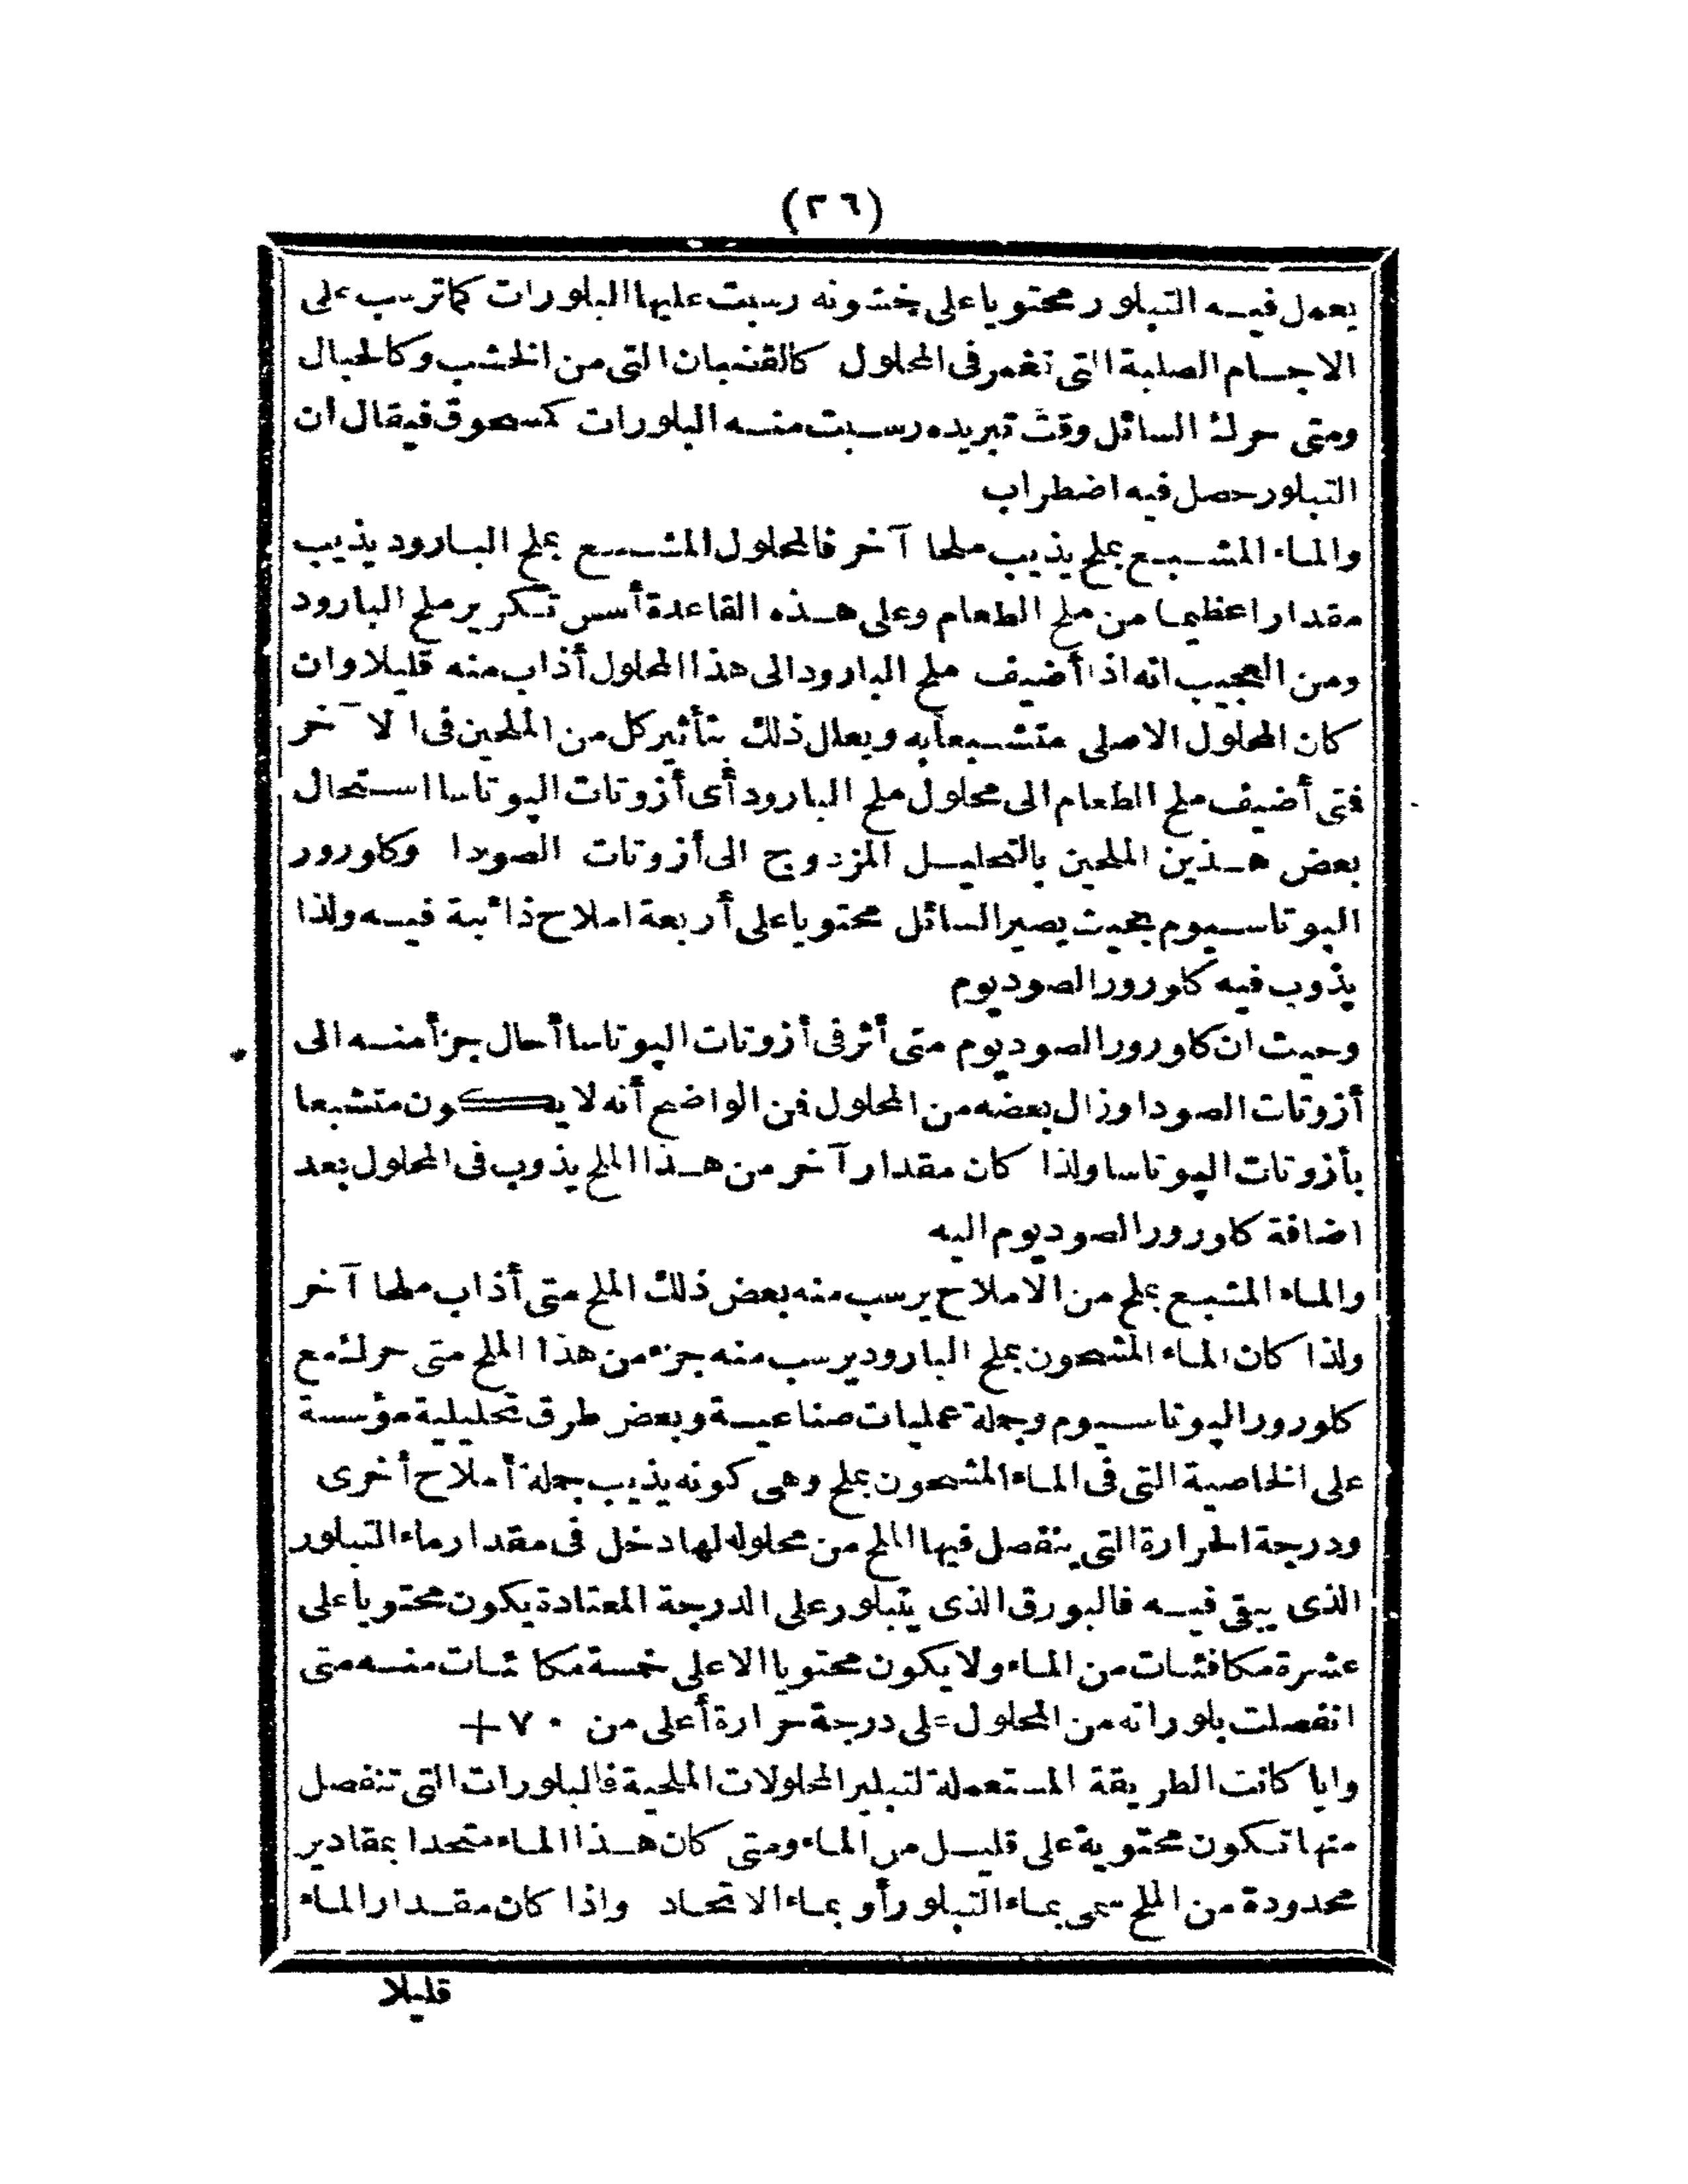 (٢٦)
يعمل فيه التبلور محتويا على خشونه رسبت عليها البلورات كما ترسب على
الاجسام الصلبة التى تغمر فى المحلول كالقضبان التى من الخشب وكالحبال
ومتى حرك السائل وقت تبريده رسبت منه البلورات كمسحوق فيقال ان
التبلور حصل فيه اضطراب
والماء المشبع بملح يذيب ملحا آخر فالمحلول المشبع بملح البارود يذيب
مقدارا عظيما من ملح الطعام وعلى هذه القاعدة أسس تكرير ملح البارود
ومن العجيب انه اذا أضيف ملح البارود الى هذا المحلول أذاب منه قليلا وان
كان المحلول الاصلى متشبعا به ويعلل ذلك بتأثير كل من الملحين فى الآخر
فتى أضيف ملح الطعام الى محلول ملح البارود أى أزوتات البوتاسا استحال
بعض هذين الملحين بالتحليل المزدوج الى أزوتات الصودا وكلورور
البوتاسيوم بحيث يصير السائل محتويا على أربعة املاح ذائبة فيه ولذا
يذوب فيه كلورور الصوديوم
وحيث ان كلورور الصوديوم متى أثر فى أزوتات البوتاسا أحال جزأ منه الى
أزوتات الصودا وزال بعضه من المحلول فمن الواضح أنه لا يكون متشبعا
بأزوتات البوتاسا ولذا كان مقدار آخر من هذا الملح يذوب فى المحلول بعد
اضافة كلورور الصوديوم اليه
والماء المشبع بملح من الاملاح يرسب منه بعض ذلك الملح متى أذاب ملحا آخر
ولذا كان الماء المشحون بملح البارود يرسب منه جزء من هذا الملح متى حرك مع
كلورور البوتاسيوم وجملة عمليات صناعية وبعض طرق تحليلية مؤسسة
على الخاصية التى فى الماء المشحون بملح وهى كونه يذيب جملة أملاح أخرى
ودرجة الحرارة التى ينفصل فيها الملح من محلوله لها دخل فى مقدار ماء التبلور
الذى يبقى فيه فالبورق الذى يتبلور على الدرجة المعتادة يكون محتويا على
عشرة مكافئات من الماء ولا يكون محتويا الا على خمسة مكا ئات منه متى
انفصلت بلوراته من المحلول على درجة حرارة أعلى من ٧٠ +
وايا كانت الطريقة المستعملة لتبلير المحلولات الملحية فالبلورات التى تنفصل
منها تكون محتوية على قليل من الماء ومتى كان هذا الماء متحدا بمقادير
محدودة من الملح سمى بماء التبلور أو بماء الاتحاد واذا كان مقدار الماء
قليلا